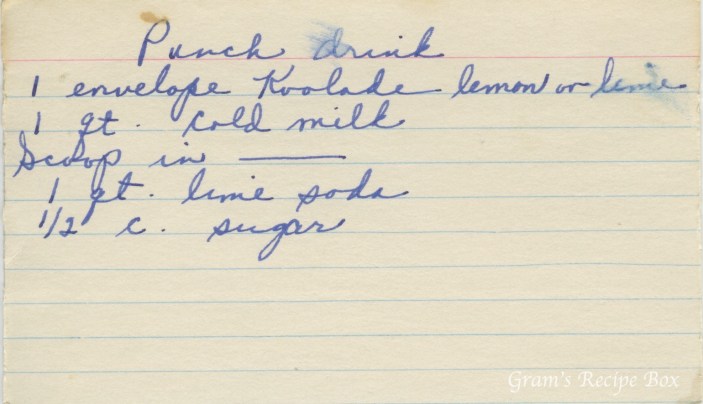 Punch drink
1 envelope Koolade lemon or lime
1 qt. cold milk
Scoop in ———
1 qt. lime soda
1/2 c. sugar
Gram's Recipe Box